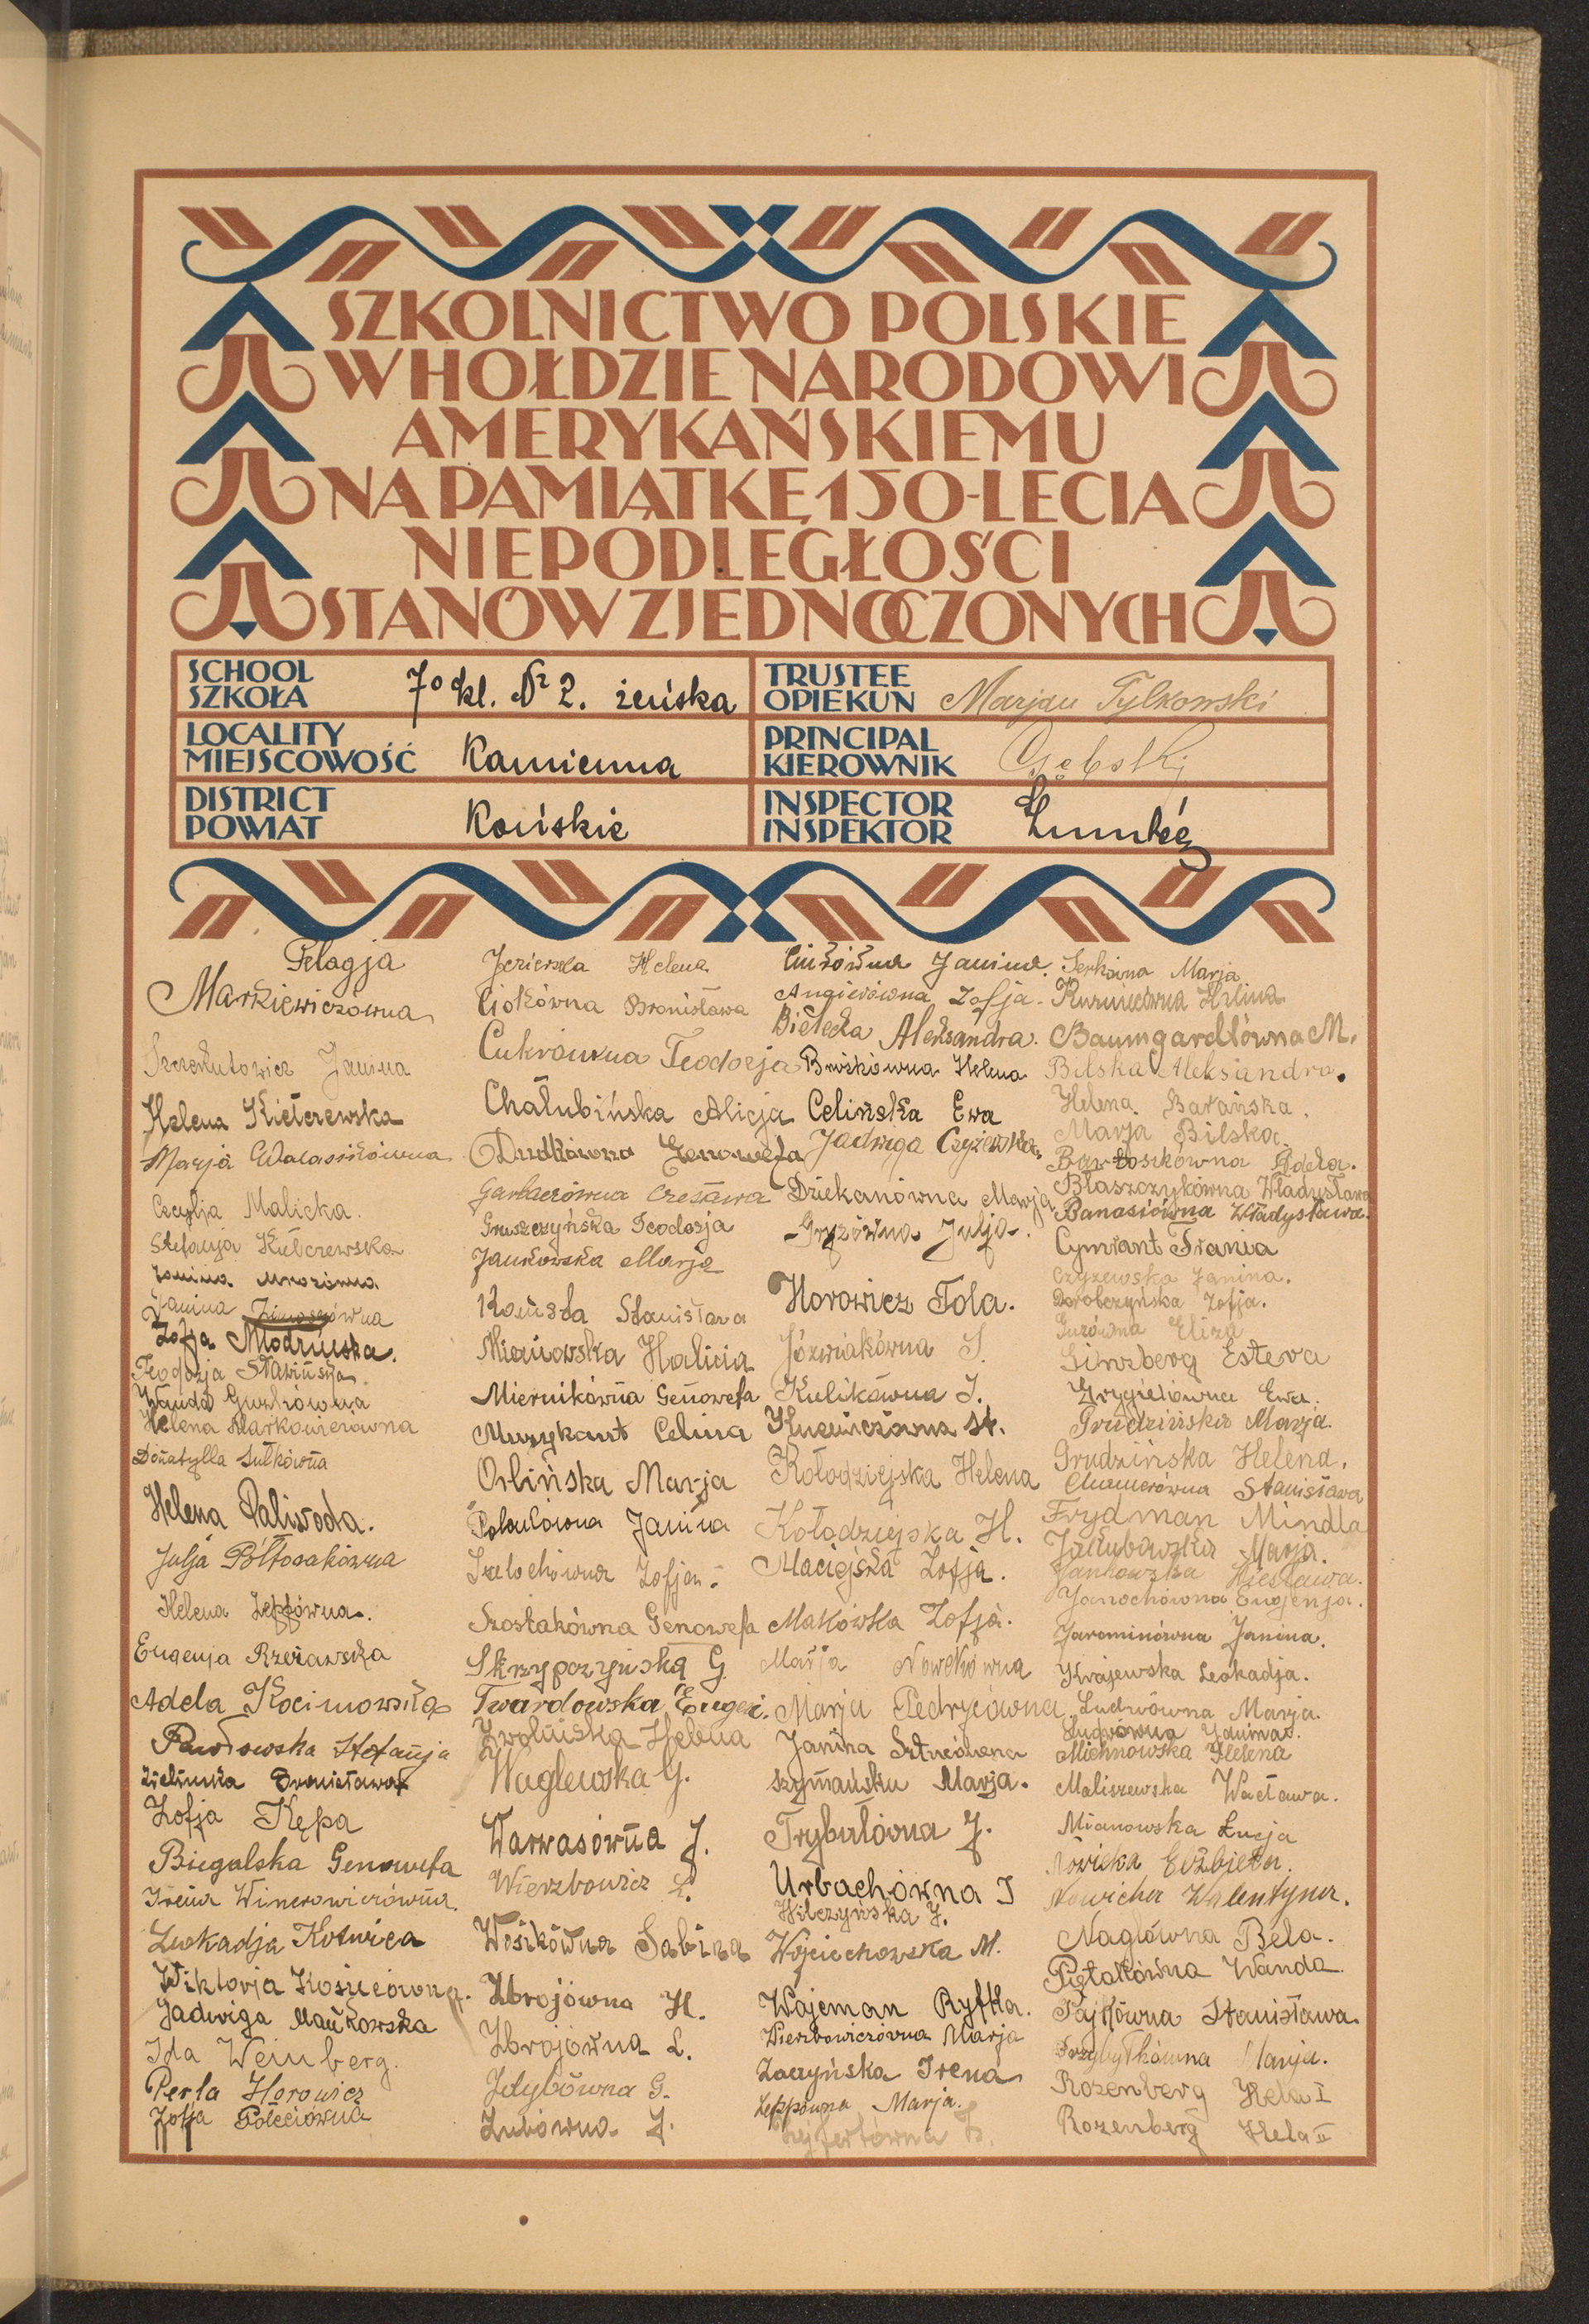 SZKOLNICTWO POLSKIE
W HOŁDZIE NARODOWI
AMERYKAŃSKIEMU
NA PAMIĄTKĘ 150-LECIA
NIEPODLEGŁOŚCI
STANÓW ZJEDNOCZONYCH
SCHOOL
SZKOŁA
7o kl. № 2. żeńska
TRUSTEE
OPIEKUN
Marjan Tylkowski
LOCALITY
MIEJSCOWOŚĆ
Kamienna
PRINCIPAL
KIEROWNIK
DISTRICT
POWIAT
Końskie
INSPECTOR
INSPEKTOR
Pelagja
Markiewiczówna
Janina
Helena Kiełczewska
Marja Walasikówna
Cecylja Malicka.
Stefanja Kiełczewska
Janina Mrozówna
Janina
Zofja Modzińska.
Teodozja Sławińska
Wanda
Helena Markowiczówna
Donatylla Sułkówna
Helena Paliwoda.
Julja Półtorakówna
Helena Zeppówna.
Eugenja Rzeżawska
Adela Kocimowska
Pawłowska Stefanja
Zielińska Bronisława
Zofja Kępa
Biegalska Genowefa
Irena Winerowiczówna.
Leokadja Kotwica
Wiktorja
Jadwiga Mańkowska
Ida Weinberg.
Perla Horowicz
Zofja Połeciówna
Jezierska Helena
Ciokówna Bronisława
Cukrówna Teodozja
Chałubińska Alicja
Dudkówna Genowefa
Garbaczówna Czesława
Gruszczyńska Teodozja
Jankowska Marja
Końska Stanisława
Mianowska Halicia
Miernikówna Genowefa
Muzykant Celina
Orlińska Marja
Janina
Szelochówna Zofja.
Szostakówna Genowefa
Skrzypczyńska G.
Twardowska Eugen.
Zwolińska Helena
Waglewska G.
Warwasówna J.
Wierzbowicz L.
Wośikówna Sabina
Zbrojówna H.
Zbrojówna L.
Zdybówna G.
Zubówna J.
Janina.
Angierówna Zofja.
Bielecka Aleksandra.
Helena
Celińska Ewa
Jadwiga Czyżewska.
Dziekanówna Marja
Gryzówna Julja.
Horowicz Tola.
Jóźwiakówna S.
Kulikówna J.
St.
Kołodziejska Helena
Kołodziejska H.
Maciejska Zofja.
Makowska Zofja.
Marja Nowkówna
Marja Pedrycówna
Janina
Szymańska Marja.
Trybułówna J.
Urbachówna I
Wilczyńska J.
Wojciechowska M.
Wajcman Ryfka.
Wierzbowiczówna Marja
Zaczyńska Irena
Zeppówna Marja.
Serkówna Marja
Kuśmierzówna Halina
Baumgardtówna M.
Bilska Aleksandra.
Helena Barańska.
Marja Bilska.
Bartosikówna Adela.
Błaszczykówna Władysława
Banasiówna Władysława.
Cymrant Frania
Czyżewska Janina.
Dorobczyńska Zofja.
Guzówna Eliza
Ginzberg Estera
Grygielówna Ewa.
Grudzińska Marja.
Grudzińska Helena.
Stanisława
Frydman Mindla
Jakubowska Marja.
Jankowska Wiesława.
Janochówna Eugenja.
Jarominówna Janina.
Krajewska Leokadja.
Ludwówna Marja.
Ludwówna Janina.
Michnowska Helena
Maliszewska Wacława.
Mianowska Łucja
Nowicka Elżbieta.
Nowicka Walentyna.
Naglówna Bela.
Piętakówna Wanda.
Pajkówna Stanisława.
Przybyłkówna Marja.
Rozenberg Hela I
Rozenberg Hela II